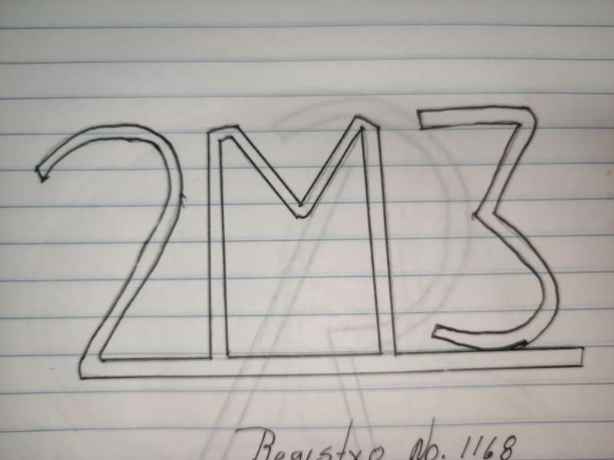 2M3
Registro No. 1168